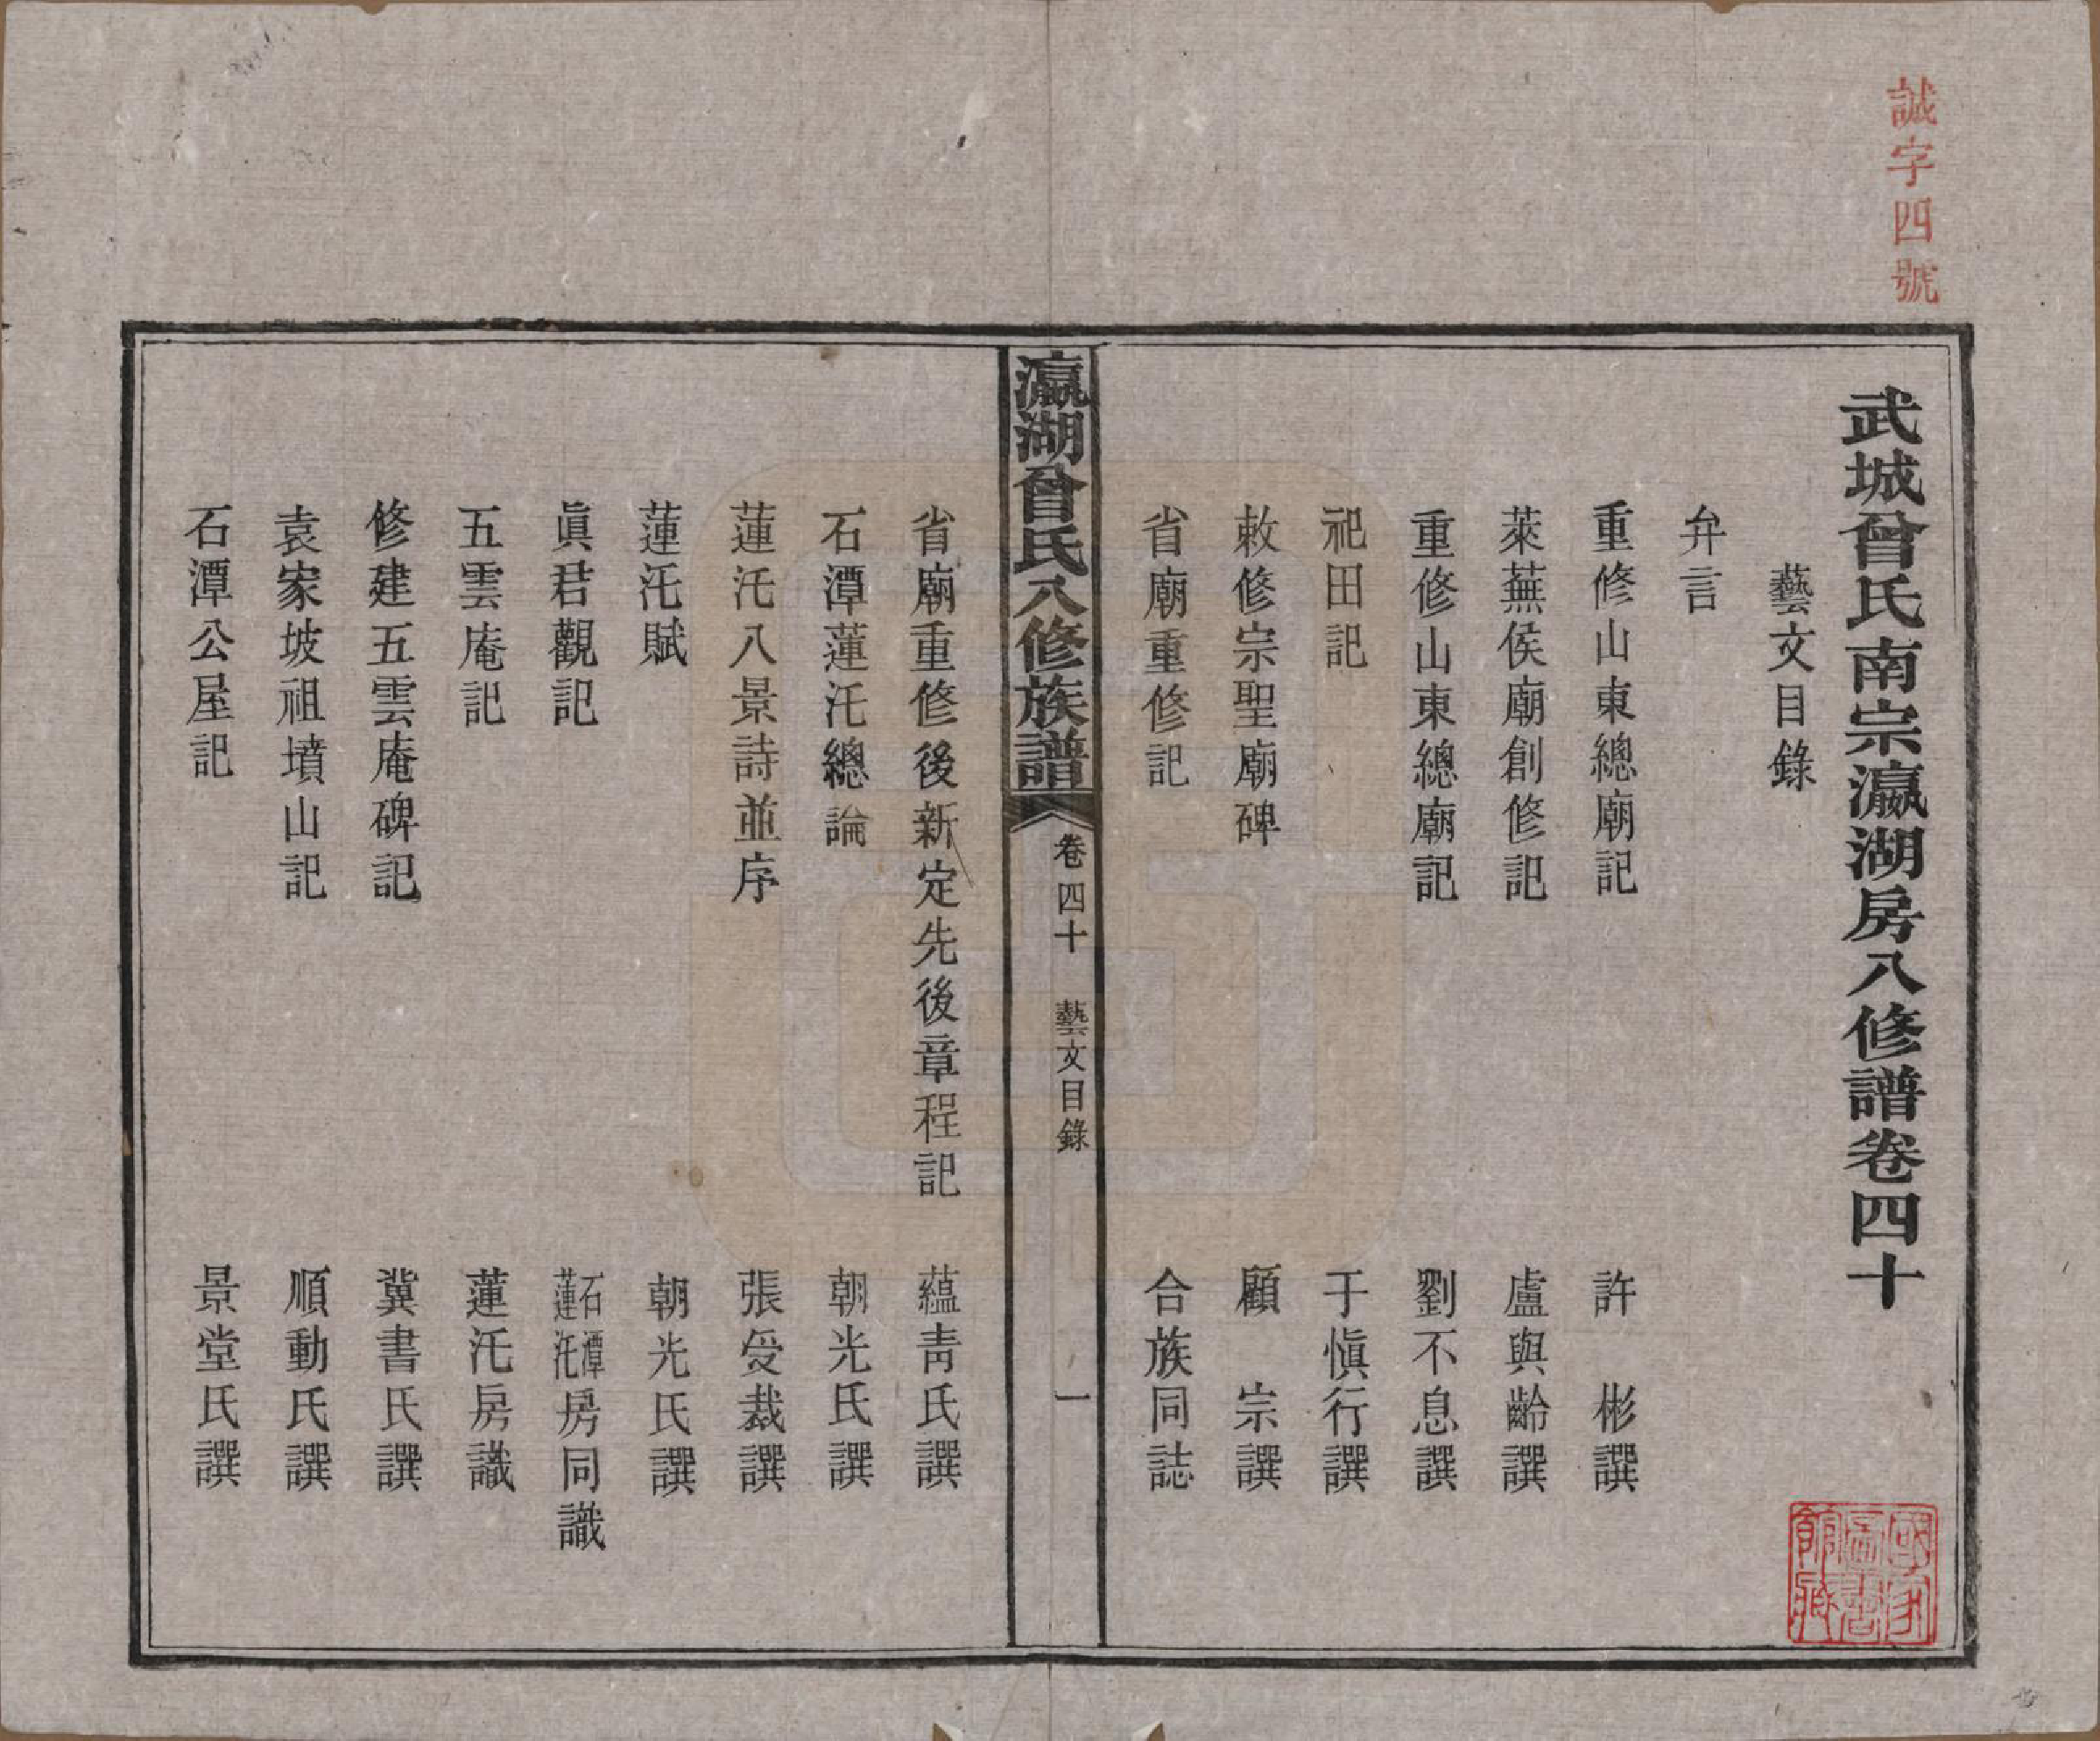 誠字四號
武城曾氏南宗瀛湖房八修譜卷四十
藝文目錄
弁言
重修山東總廟記 許彬譔
萊蕪侯廟創修記 盧與齡譔
重修山東總廟記 劉不息譔
祀田記 于愼行譔
敕修宗聖廟碑 顧宗譔
省廟重修記 合族同誌
瀛湖曾氏八修族譜 卷四十 藝文目錄 一
省廟重修後新定先後章程記 蘊靑氏譔
石潭蓮汑總論 朝光氏譔
蓮汑八景詩並序 張受裁譔
蓮汑賦 朝光氏譔
眞君觀記 石潭蓮汑房同識
五雲庵記 蓮汑房識
修建五雲庵碑記 冀書氏譔
袁家坡祖墳山記 順動氏譔
石潭公屋記 景堂氏譔
國家圖書館藏